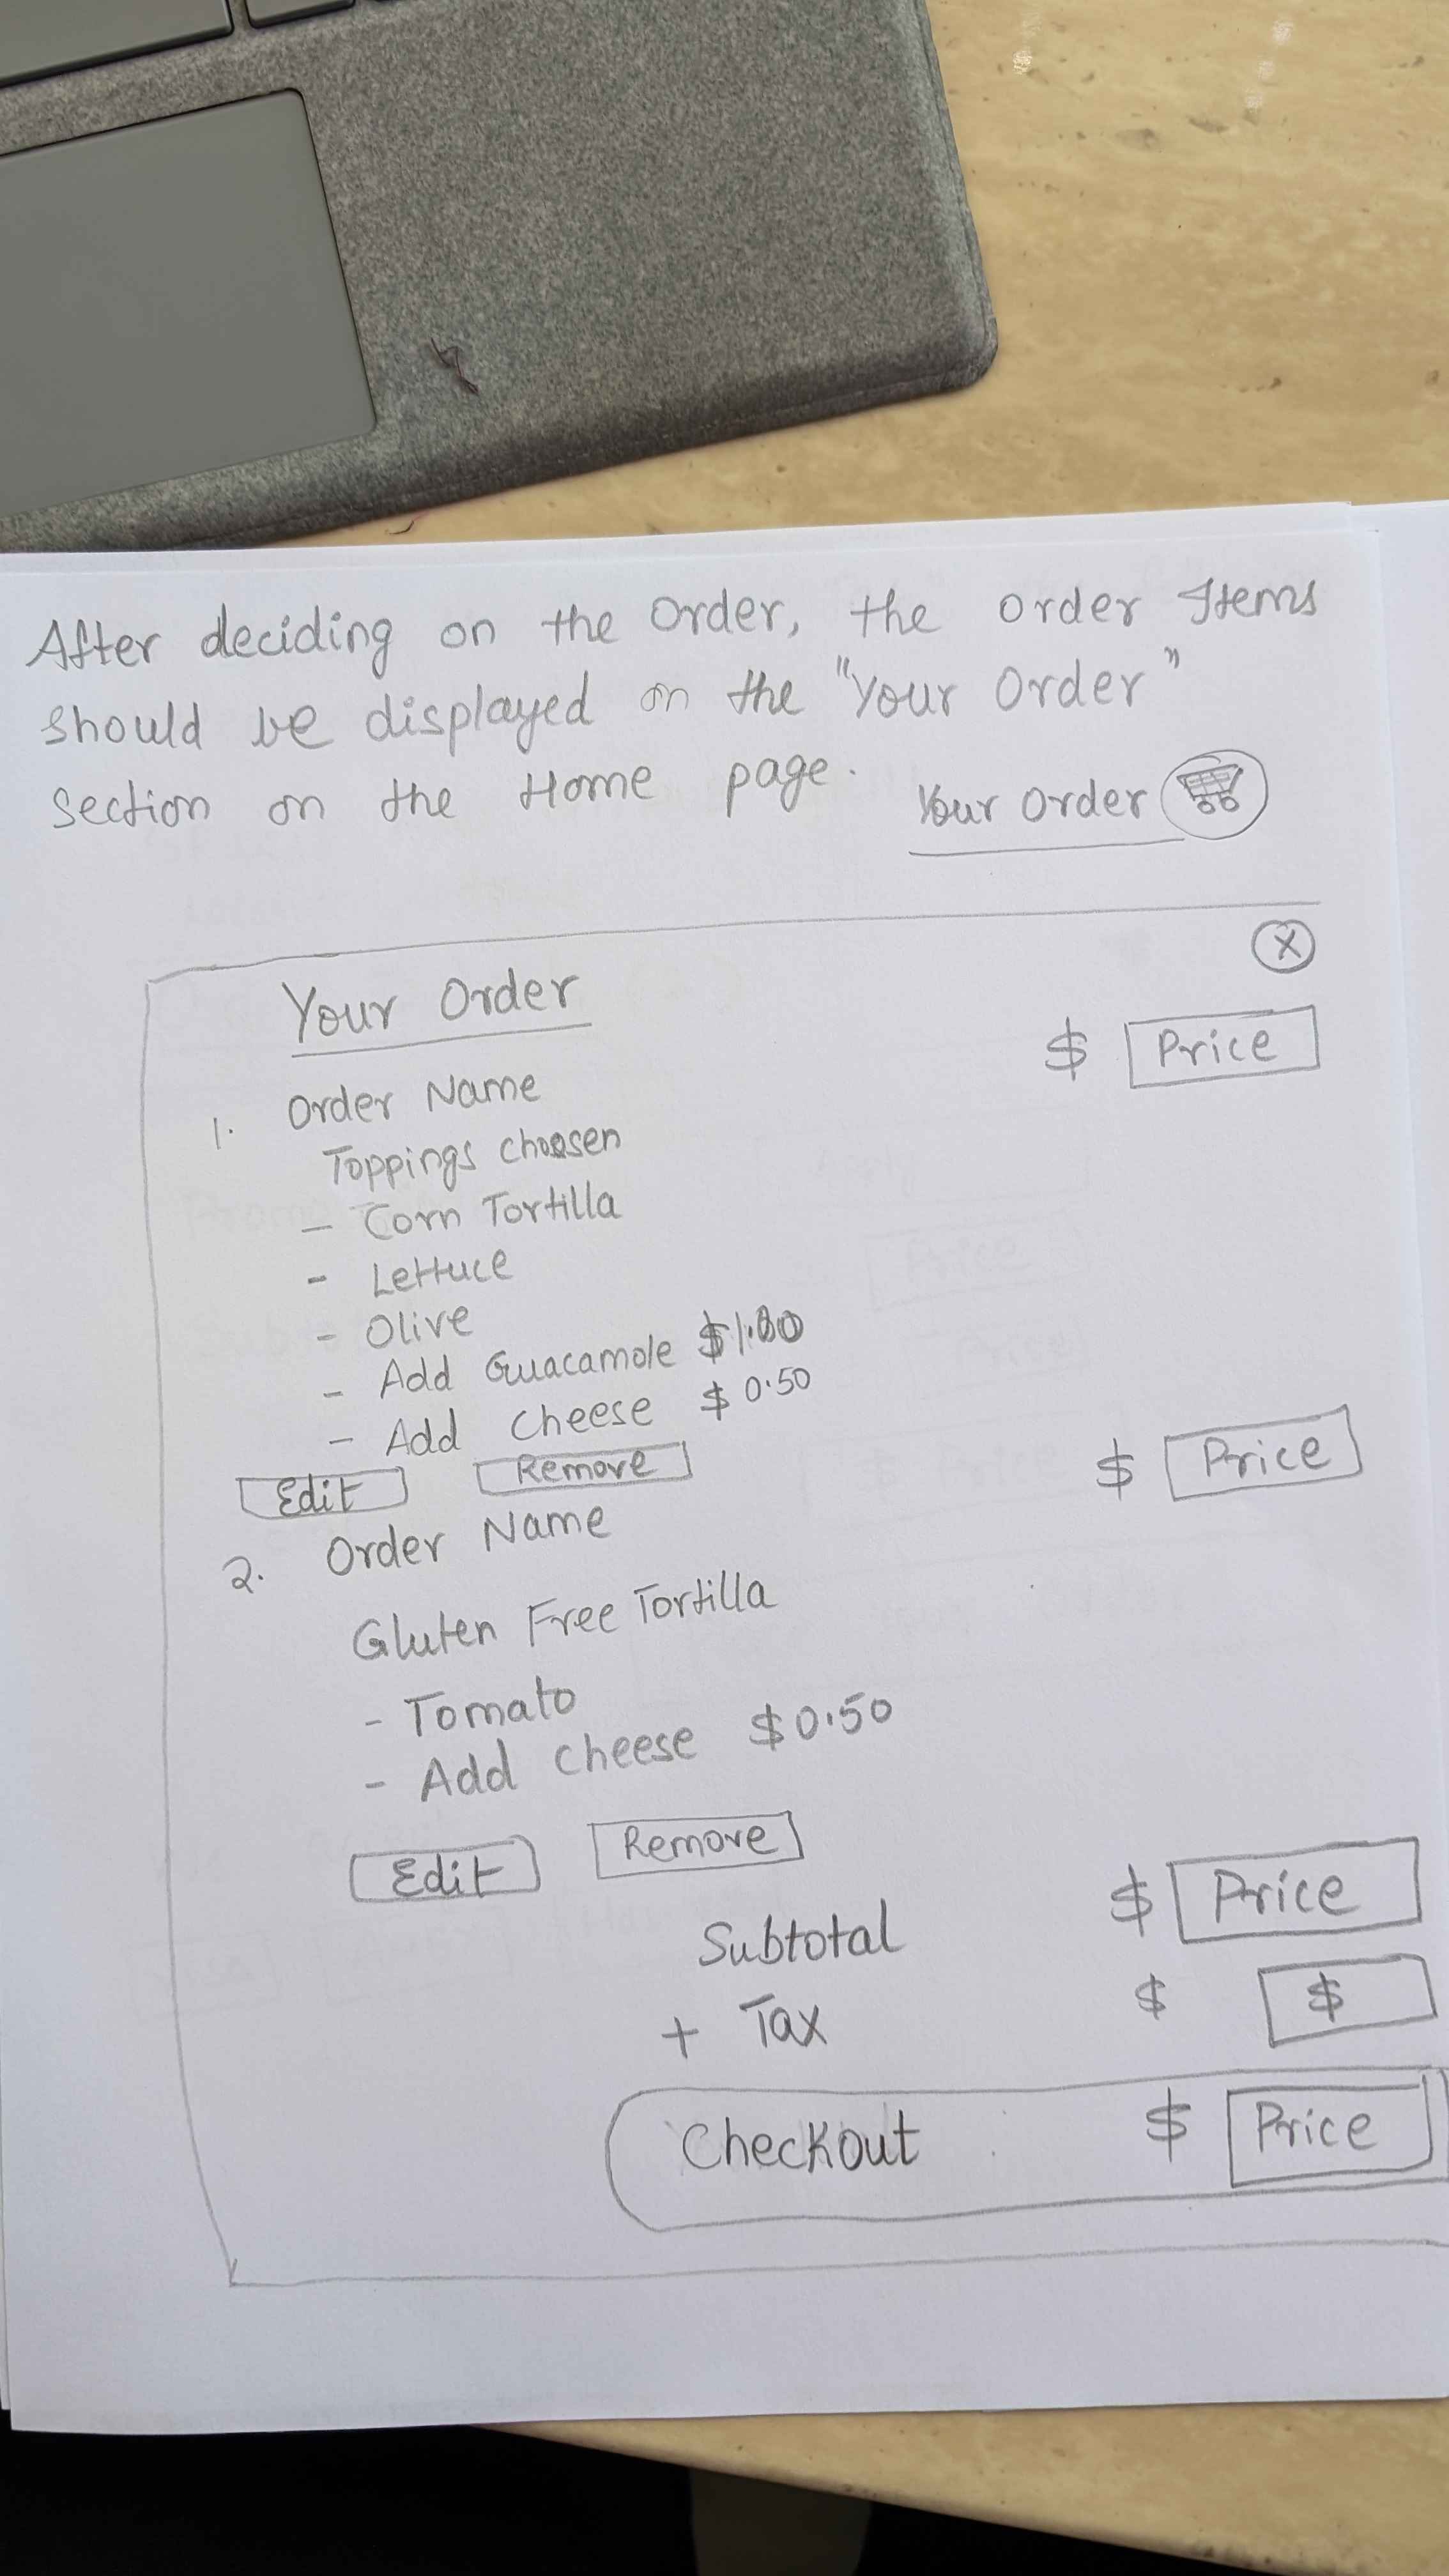 After deciding on the order, the order Items
should be displayed on the "Your Order"
section on the Home page.
Your Order
X
Your Order
$ Price
1. Order Name
Toppings choosen
- Corn Tortilla
- Lettuce
- Olive
- Add Guacamole $1.00
- Add cheese $0.50
Edit Remove
$ Price
2. Order Name
Gluten Free Tortilla
- Tomato
- Add cheese $0.50
Edit Remove
Subtotal $ Price
+ Tax $ $
Checkout $ Price